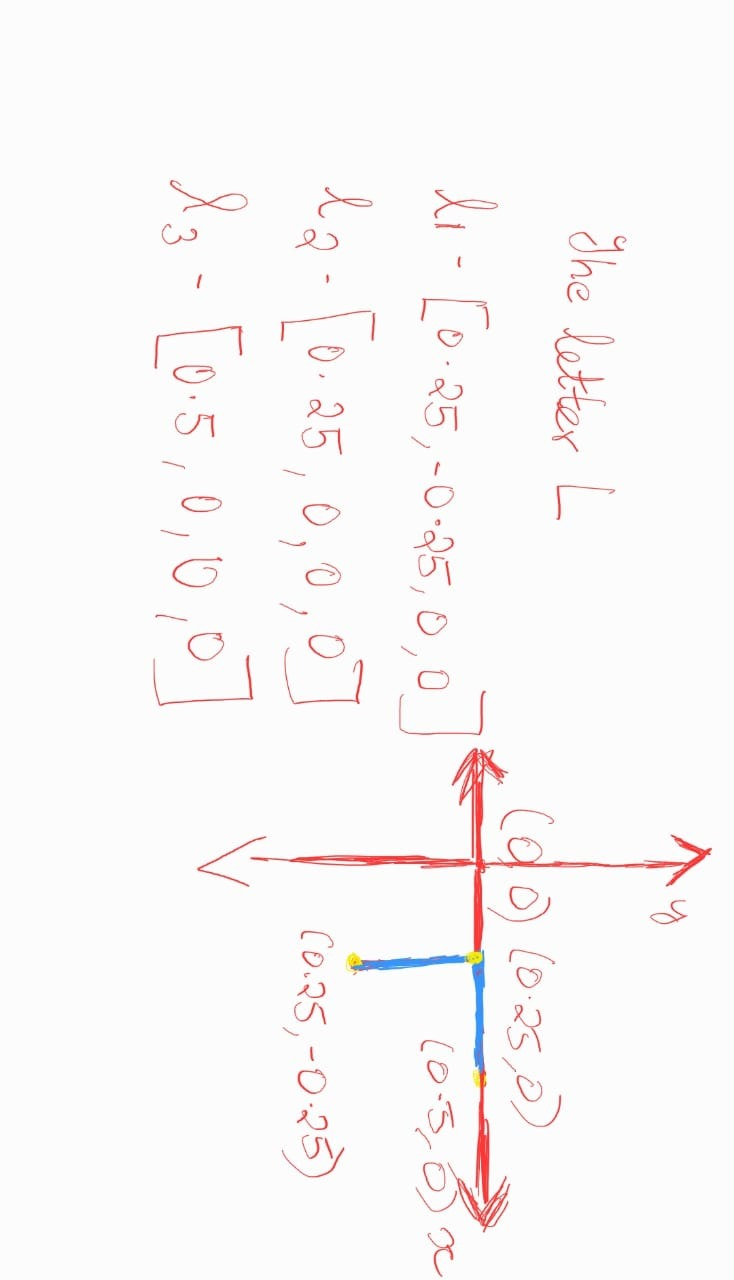 The letter L
l1 - [0.25, -0.25, 0, 0]
l2 - [0.25, 0, 0, 0]
l3 - [0.5, 0, 0, 0]
y
(0, 0)
(0.25, 0)
(0.5, 0)
x
(0.25, -0.25)